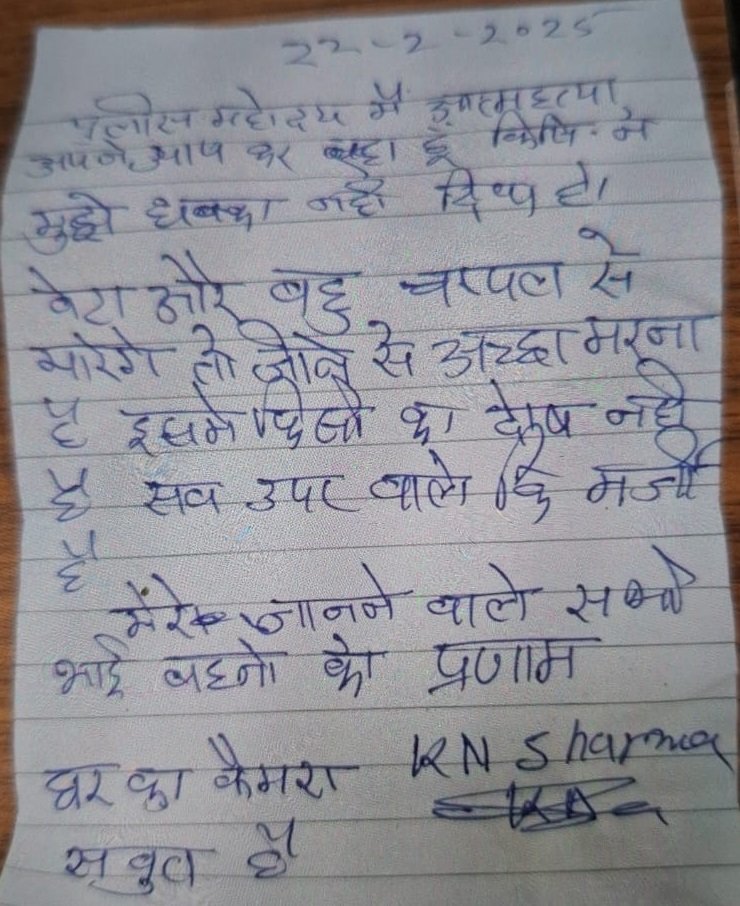 22-2-2025
पुलीस महोदय मैं आत्महत्या
अपने आप कर रहा हूँ किसि ने
मुझे धक्का नहीं दिया है।
बेटा और बहु चप्पल से
मारेगे तो जीने से अच्छा मरना
है इसमे किसी का दोष नही
है सब उपर वाले कि मर्जी
है
मेरे जानने वाले सभी
भाई बहनो को प्रणाम
घर का कैमरा KN Sharma
सबुत है